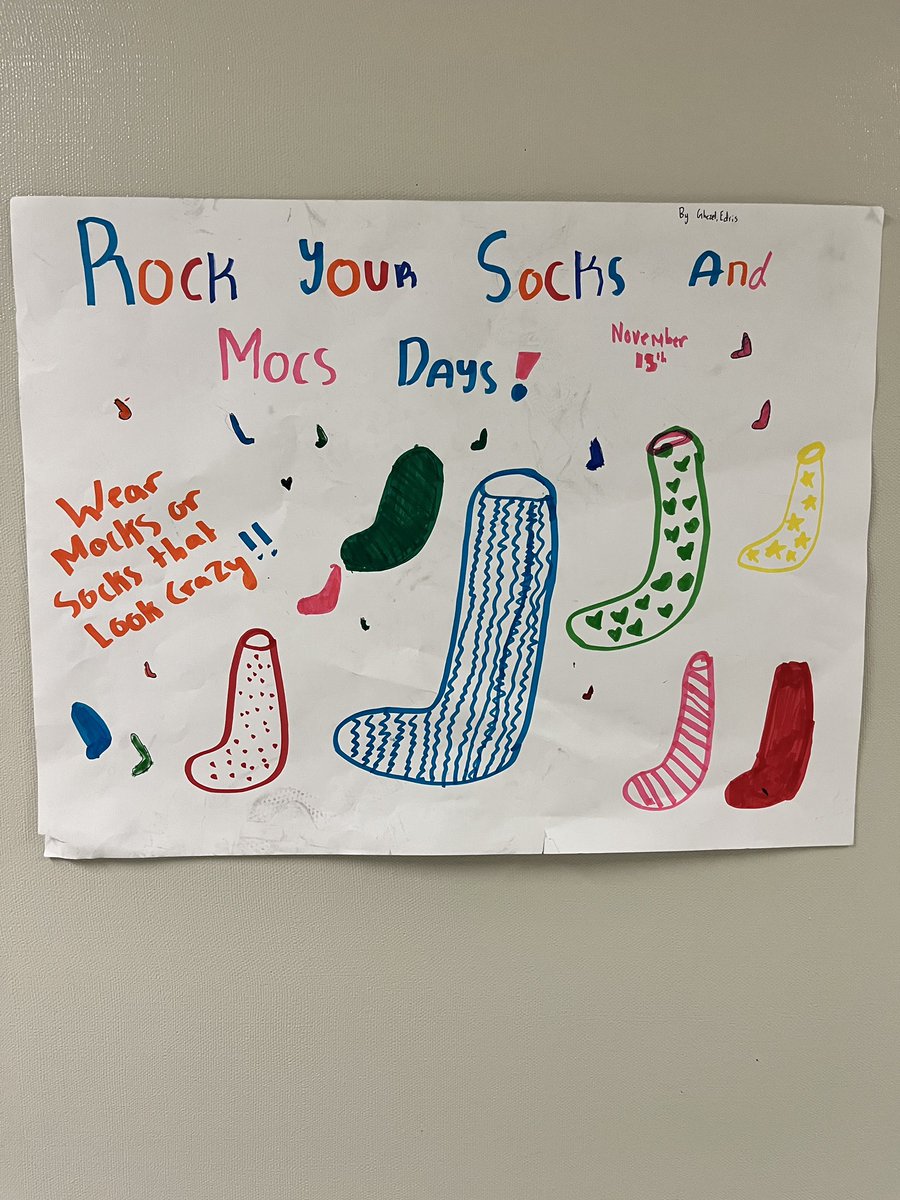 By Ghazal, Edris
Rock your Socks And
Mocs Days!
November
15th
Wear
Mocks or
Socks that
Look Crazy!!